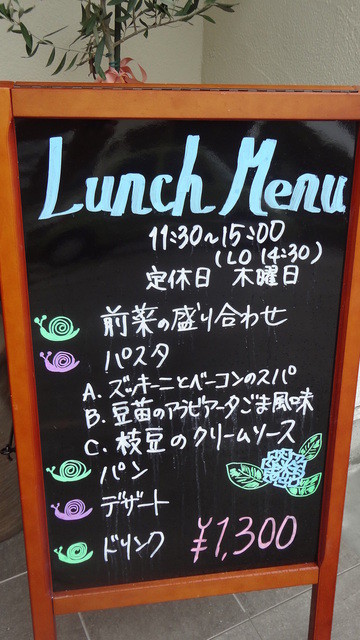 Lunch Menu
11:30～15:00
(LO 14:30)
定休日 木曜日
前菜の盛り合わせ
パスタ
A. ズッキーニとベーコンのスパ
B. 豆苗のアラビアータごま風味
C. 枝豆のクリームソース
パン
デザート
ドリンク ¥1,300